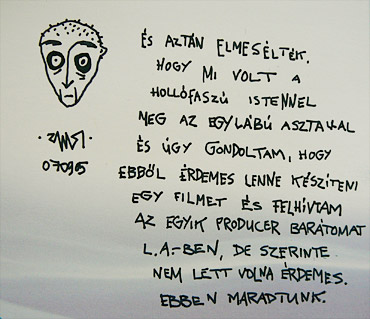 ÉS AZTÁN ELMESÉLTÉK,
HOGY MI VOLT A
HOLLÓFASZÚ ISTENNEL
MEG AZ EGYLÁBÚ ASZTALLAL
ÉS ÚGY GONDOLTAM, HOGY
EBBŐL ÉRDEMES LENNE KÉSZÍTENI
EGY FILMET ÉS FELHÍVTAM
AZ EGYIK PRODUCER BARÁTOMAT
L.A.-BEN, DE SZERINTE
NEM LETT VOLNA ÉRDEMES.
EBBEN MARADTUNK.
07095